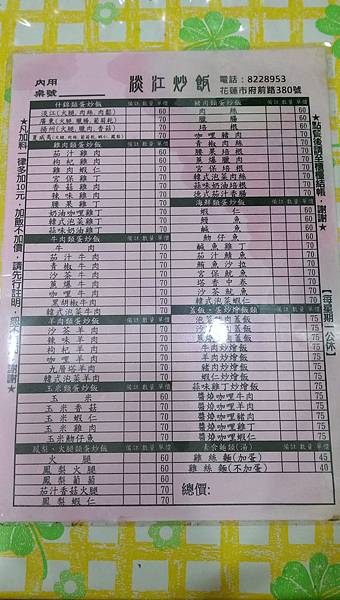 內用
桌號
淡江炒飯
電話：8228953
花蓮市府前路380號
什錦類蛋炒飯 備註 數量 單價
淡江(火腿、肉絲、肉鬆) 60
廣東(火腿、臘腸、葡萄乾) 60
揚州(火腿、臘肉、香菇) 60
雞肉類蛋炒飯 備註 數量 單價
茄汁雞肉 70
枸杞雞肉 60
雞肉蝦仁 70
宮保雞丁 70
香菇雞肉 70
辣味雞肉 70
腰果雞丁 70
奶油咖哩雞丁 70
韓式泡菜雞丁 70
蒜味奶油雞丁 70
牛肉類蛋炒飯 備註 數量 單價
牛肉 60
茄汁牛肉 70
青椒牛肉 70
沙茶牛肉 70
蔥爆牛肉 70
咖哩牛肉 70
黑胡椒牛肉 70
韓式泡菜牛肉 70
羊肉類蛋炒飯 備註 數量 單價
沙茶羊肉 70
辣味羊肉 70
枸杞羊肉 70
咖哩羊肉 70
九層塔羊肉 70
韓式泡菜羊肉 70
玉米類蛋炒飯 備註 數量 單價
玉米 60
玉米香菇 70
玉米蝦仁 70
玉米雞肉 70
玉米魩仔魚 70
鳳梨、火腿類蛋炒飯 備註 數量 單價
火腿 60
鳳梨火腿 70
鳳梨葡萄 60
茄汁香菇火腿 70
鳳梨蝦仁 70
豬肉類蛋炒飯 備註 數量 單價
肉絲 60
臘腸 60
培根 60
咖哩豬肉 70
青椒肉絲 70
腰果培根 70
蔥爆臘肉 70
宮保培根 70
韓式泡菜肉絲 70
蒜味奶油培根 70
韓式泡菜培根 70
海鮮類蛋炒飯 備註 數量 單價
蝦仁 60
鮪魚 60
鹹魚 60
魩仔魚 60
鹹魚雞丁 70
茄汁鯖魚 70
鮪魚沙拉 70
宮保魷魚 70
塔香中卷 70
沙茶魷魚 70
韓式泡菜蝦仁 70
蓋飯、蛋炒燴飯類 備註 數量 單價
75
75
75
牛肉炒燴飯 75
羊肉炒燴飯 75
豬肉炒燴飯 75
蝦仁炒燴飯 75
蒜味雞丁炒燴飯 75
醬燒咖哩牛肉 75
醬燒咖哩羊肉 75
醬燒咖哩豬肉 75
醬燒咖哩雞丁 75
醬燒咖哩蝦仁 75
素食麵類(湯) 備註 數量 單價
雞絲麵(加蛋) 45
雞絲麵(不加蛋) 40
總價：
【每星期一公休】